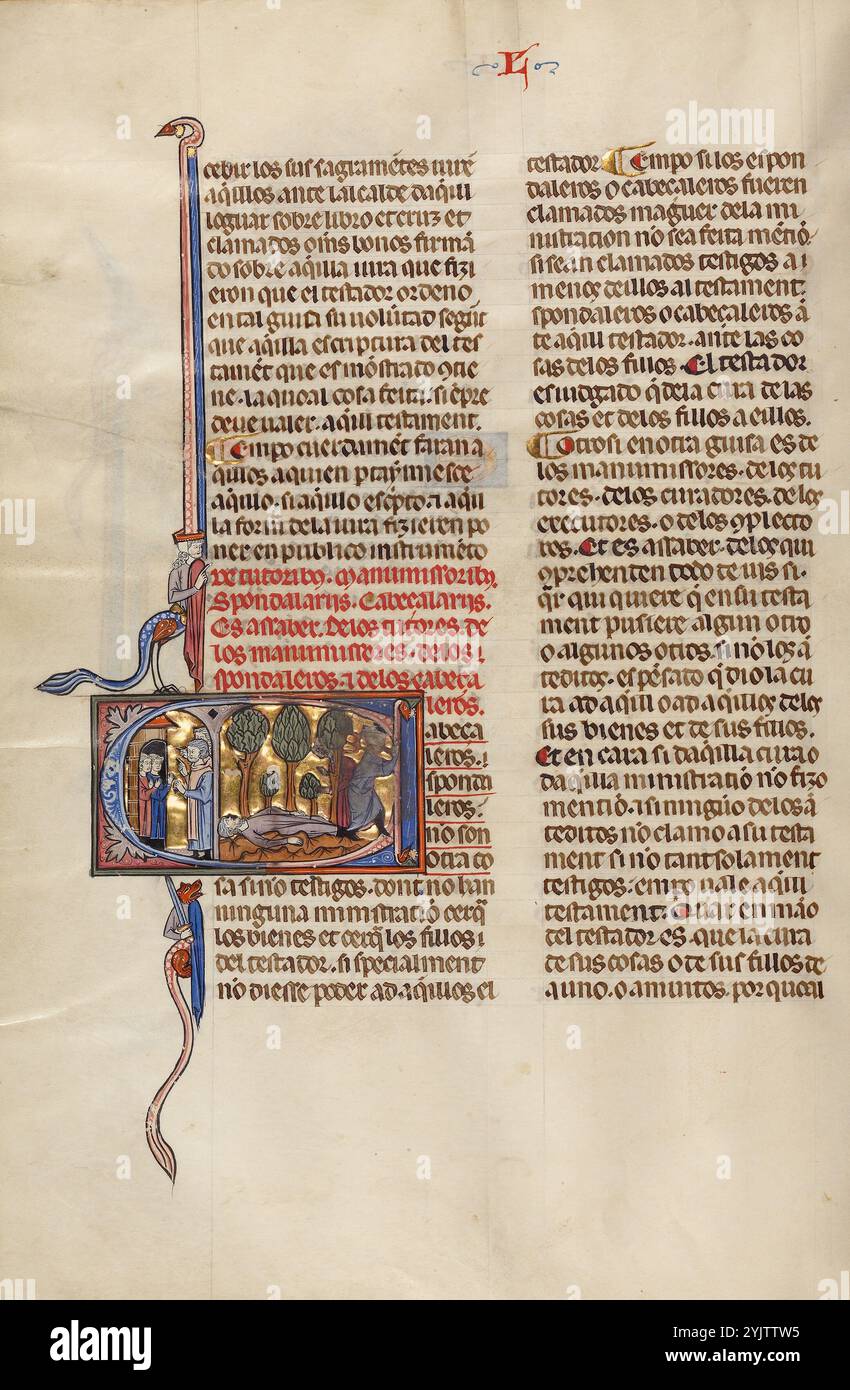 L
cebir los sus sagramētes iure
aq̄illos ante lalcalde daq̄ill
loguar sobre libro et cruz et
clamados oms bonos firmā
do sobre aq̄illa iura que fizi
eron que el testador ordeno
en tal guisa su volūtad segūt
que aq̄illa escriptura del tes
tamēt que es mōstrado 9tie
ne. la quoal cosa feita. siēpre
deve valer. aq̄ill testament.
Empo cuerdamēt faran a
q̄llos aquien
aq̄illo. si aq̄illo esc̄pto. τ aq̄ll
la form de la iura fizieren po
ner en publico instrumēto
De tutoribꝯ. Manumissoribꝯ.
Spondalarijs. Cabeçalarijs.
Es assaber. De los tutores. de
los manumissores. de los i
spondaleros. τ de los cabeça
leros.
Cabeça
leros. i
sponda
leros.
no son
otra co
sa sino testigos. dont no han
ninguna ministratiō cerq̄
los bienes et cerq̄ los fillos i
del testador. si specialment
nō diesse poder ad aq̄illos el
testador. Empo si los espon
daleros o cabeçaleros fueren
clamados maguer de la mi
nistration nō sea feita mētiō.
si sean clamados testigos a i
menos deillos al testament.
spondaleros o cabeçaleros ā
te aq̄ill testador. ante las co
sas de los fillos. El testador
es iudgado q̄ de la cura de las
cosas et de los fillos a eillos.
Otrosi en otra guisa es de
los manumissores. de los tu
tores. de los curadores. de los
executores. o de los 9plecto
res. Et es assaber. de los qui
9prehenten todo
q̄r qui quiere q̄ en su testa
ment pusiere algun otro
o algunos otros. si nō los ā
teditos. es pēsato q̄ dio la cu
ra ad aq̄ill o ad aq̄illos de los
sus bienes et de sus fillos.
Et en cara si daq̄illa cura o
daq̄illa ministratiō nō fizo
mentiō. τ si ningūo de los ā
teditos nō clamo a su testa
ment si nō tantsolament
testigos. empo vale aq̄ill
testament. Mar en māo
del testador es. que la cura
de sus cosas o de sus fillos de
a uno. o a muitos. por quoal
alamy
Image ID: 2YJTTW5
www.alamy.com